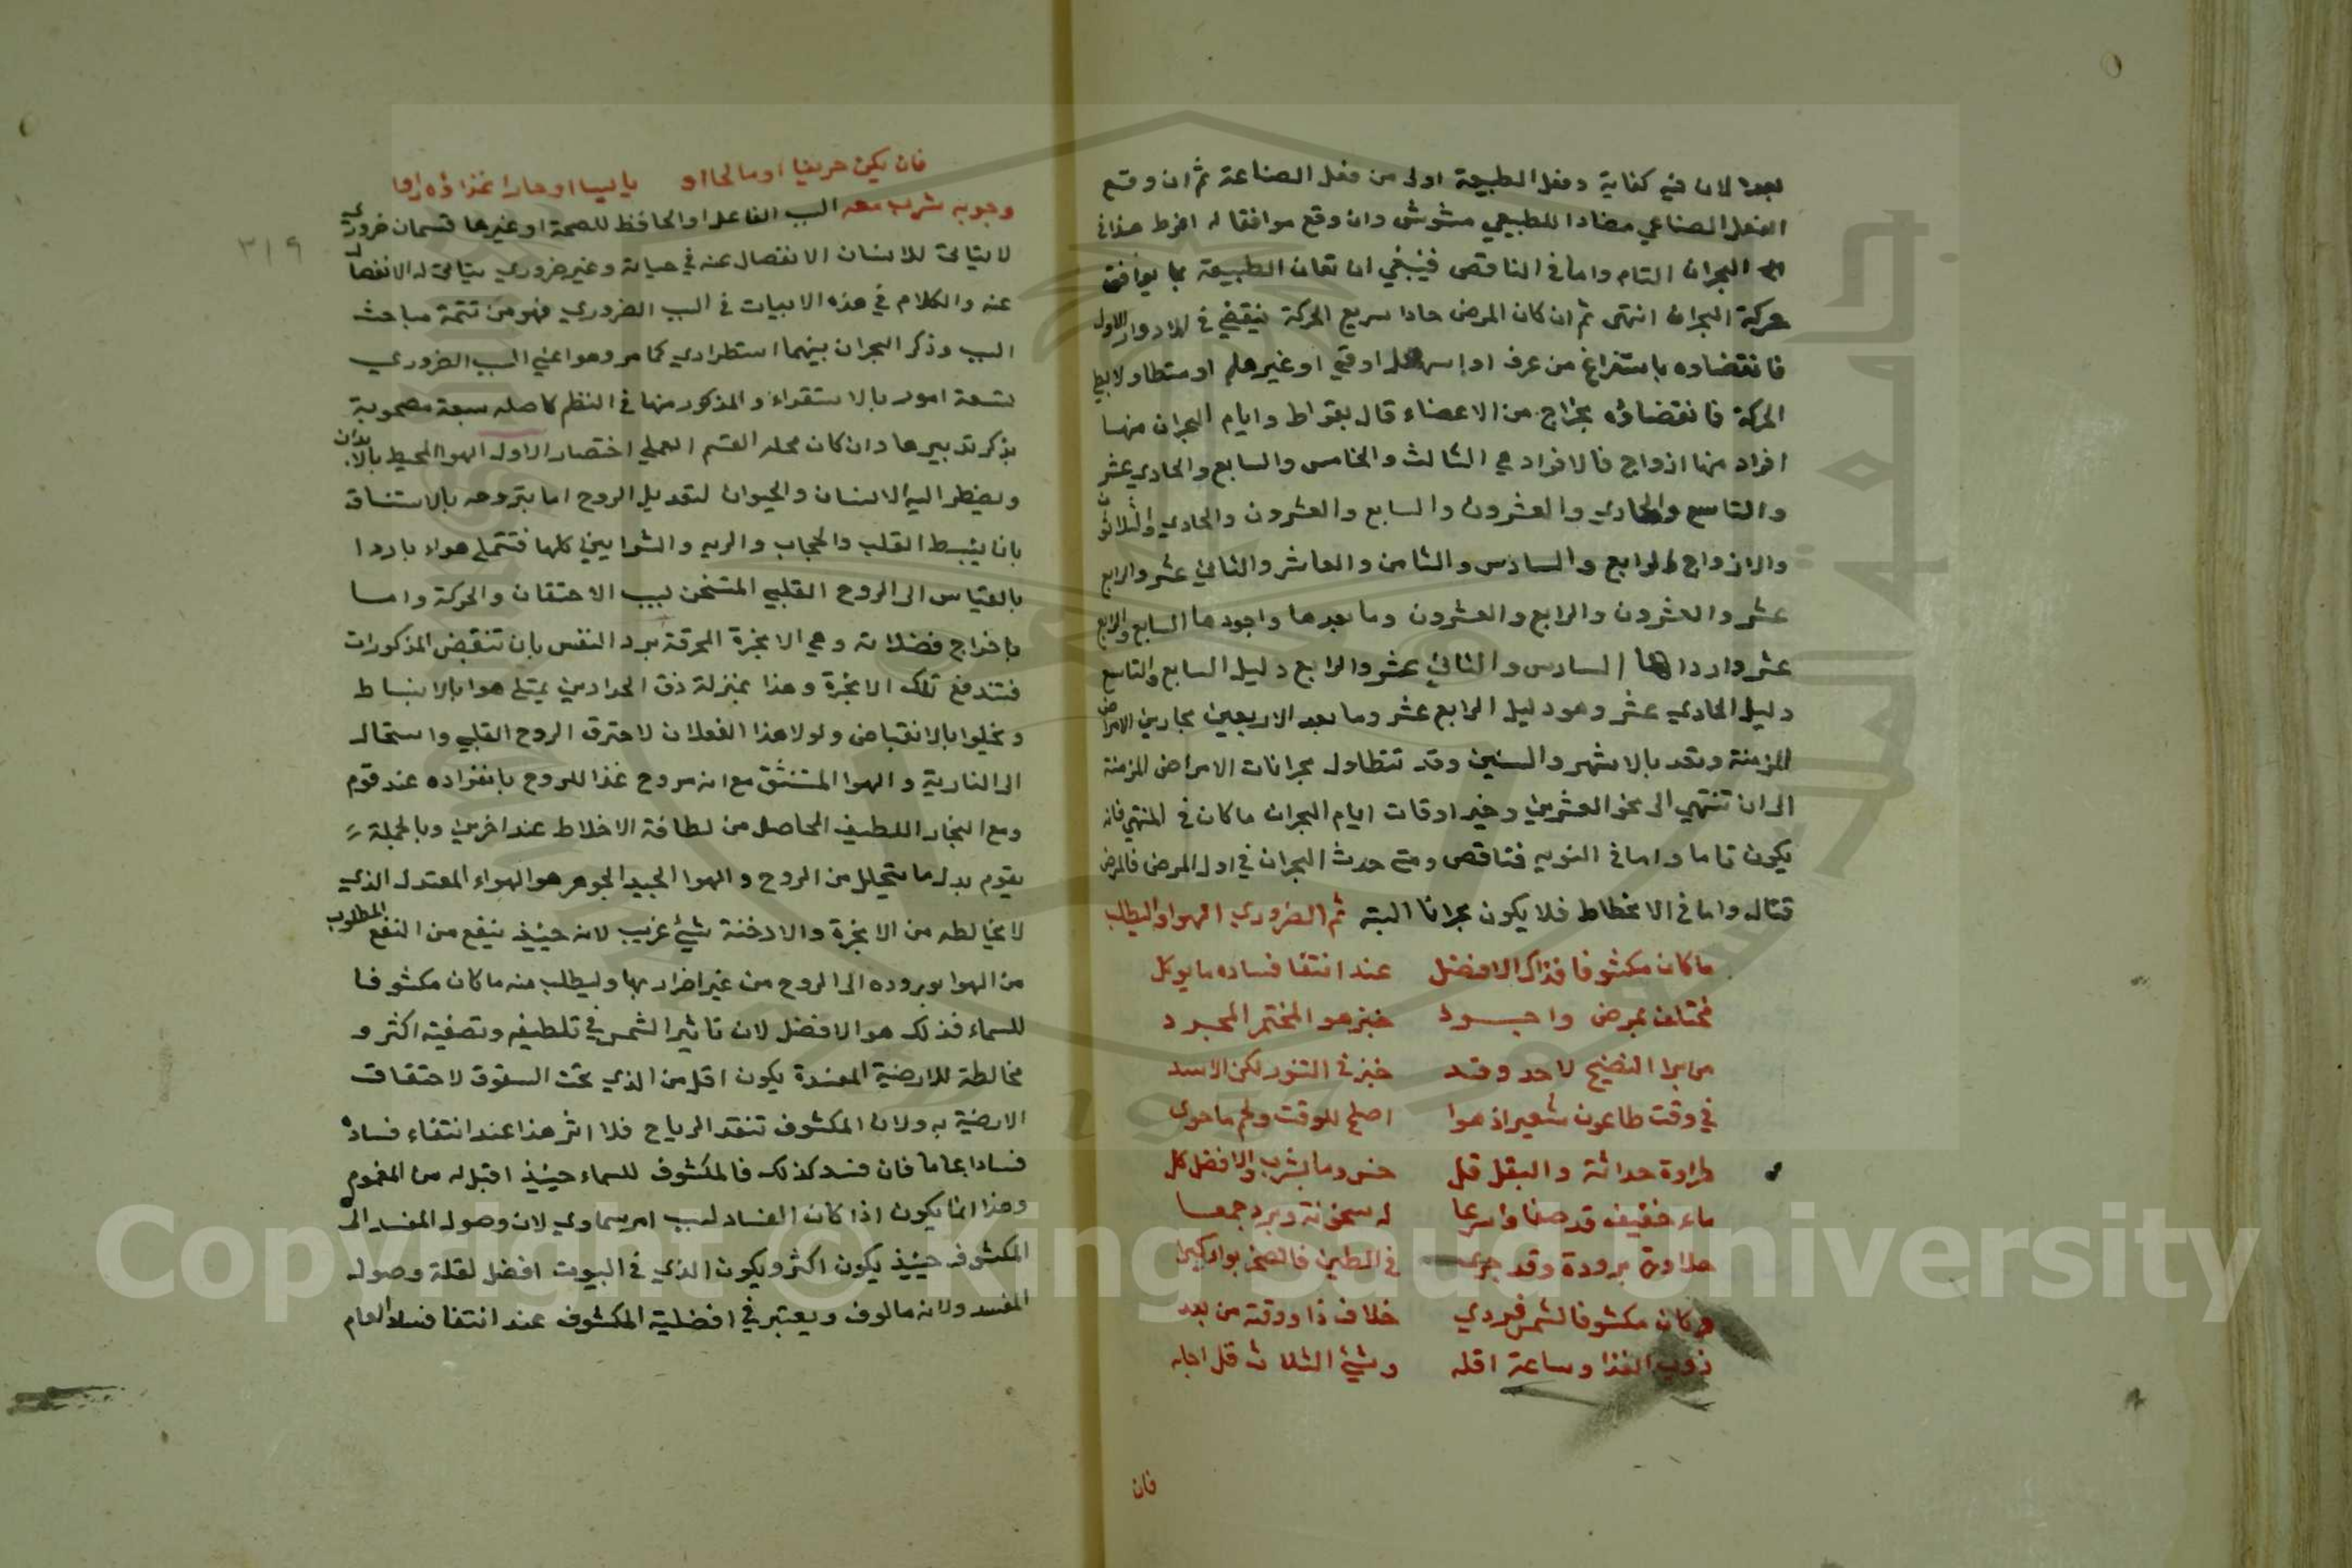 بعدا لان فيه كفاية وفعل الطبيعة اولى من فعل الصناعة ثم ان وقع
الفعل الصناعي مضادا للطبيعي مشوش وان وقع موافقا له افرط هذا في
البحران التام واما في الناقص فينبغي ان تعان الطبيعة بما يوافق
حركة البحران انتهى ثم ان كان المرض حادا سريع الحركة ينقضي في الادوار الاول
فانقضاوه باستفراغ من عرف او اسهال او قي او غيرهم او متطاولا بطي
الحركة فانقضاؤه بخراج من الاعضاء قال بقراط وايام البحران منها
افراد منها ازواج فالافراد هي الثالث والخامس والسابع والحادي عشر
والتاسع والحادي والعشرون والسابع والعشرون والحادي والثلاثون
والازواج الرابع والسادس والثامن والعاشر والثاني عشر والرابع
عشر والعشرون والرابع والعشرون وما بعدها واجودها السابع والرابع
عشر وارداها السادس والثاني عشر والرابع دليل السابع والتاسع
دليل الحادي عشر وهو دليل الرابع عشر وما بعد الاربعين بحارين الامراض
المزمنة وتعد بالاشهر والسنين وقد تتطاول بحرانات الامراض المزمنة
الى ان تنتهي الى نحو العشرين وخير اوقات ايام البحران ما كان في المنتهي فانه
يكون تاما واما في النوبه فناقص ومتى حدث البحران في اول المرض فالمرض
قتال واما في الانحطاط فلا يكون بحرانا البتة ثم الضروري الهوا واليطلب
ما كان مكشوفا فذاك الافضل عند انتفا فساده ما يوكل
فمختلف بمرض واجود خبز هو المختمر المجرد
من برا النضيج لاحد وقد خبز في التنور لكن الاسد
في وقت طاعون شعير اذ هوا اصلح للوقت ولحم ما حوى
طراوة حداثة والبقل قل خس وما يشرب والافضل كل
ماء خفيف قد صفا واسرعا له سخونة وبرد جمعا
حلاوة برودة وقد جرى في الطين فالصخر بواد كبرا
وكان مكشوفا لشمس فردي خلاف ذا ووقته من بعد
ذوب الغذا وساعة اقله وشيء الثلاث قل اجله
فان
٣١٩
فان يكن حريفا او مالحا او يابسا او حارا غذاؤه راوا
وجوبه شرب معه السبب الفاعل او الحافظ للصحة او غيرها قسمان ضروري
لا يتاتى للانسان الانفصال عنه في حياته وغير ضروري يتاتى له الانفصال
عنه والكلام في هذه الابيات في السبب الضروري فهو من تتمة مباحث
السبب وذكر البحران بينهما استطرادي كما مر وهو اعني السبب الضروري
تسعة امور بالاستقراء والمذكور منها في النظم كاصله سبعة مصحوبة
بذكر تدبيرها وان كان محله القسم العملي اختصار الاول الهوا المحيط بالابدان
ويضطر اليه الانسان والحيوان لتعديل الروح اما بتروحه بالاستنشاق
بان ينبسط القلب والحجاب والريه والشرايين كلها فتمتلي هواء باردا
بالقياس الى الروح القلبي المتسخن بسبب الاحتقان والحركة واما
باخراج فضلاته وهي الابخرة المحرقة برد النفس بان تنقبض المذكورات
فتندفع تلك الابخرة وهذا بمنزلة ذق الحدادين يمتلي هوا بالانبساط
ويخلوا بالانقباض ولولا هذا الفعلان لاحترق الروح القلبي واستحال
الى النارية والهوا المستنشق مع انه مروح غذا للروح بانفراده عند قوم
ومع البخار اللطيف الحاصل من لطافة الاخلاط عند اخرين وبالجملة
يقوم بدل ما يتحلل من الروح والهوا الجيد الجوهر هو الهواء المعتدل الذي
لا يخالطه من الابخرة والادخنة شيء غريب لانه حينئذ ينفع من النفع المطلوب
من الهوا بوروده الى الروح من غير اضرار بها وليطلب منه ما كان مكشوفا
للسماء فذلك هو الافضل لان تاثير الشمس في تلطيفه وتصفيته اكثر و
مخالطة للارضية المفسدة يكون اقل من الذي تحت السقوف لاحتقاق
الارضية به ولان المكشوف تنقد الرياح فلا اثر هذا عند انتفاء فساده
فسادا عاما فان فسد كذلك فالمكشوف للسماء حينئذ اقبل له من المغموم
وهذا انما يكون اذا كان الفساد لسبب امر سماوي لان وصول المفسد الى
المكشوف حينئذ يكون اكثر ويكون الذي في البيوت افضل لقلة وصول
المفسد ولانه مالوف ويعتبر في افضلية المكشوف عند انتفا فساد العام
Copyright © King Saud University